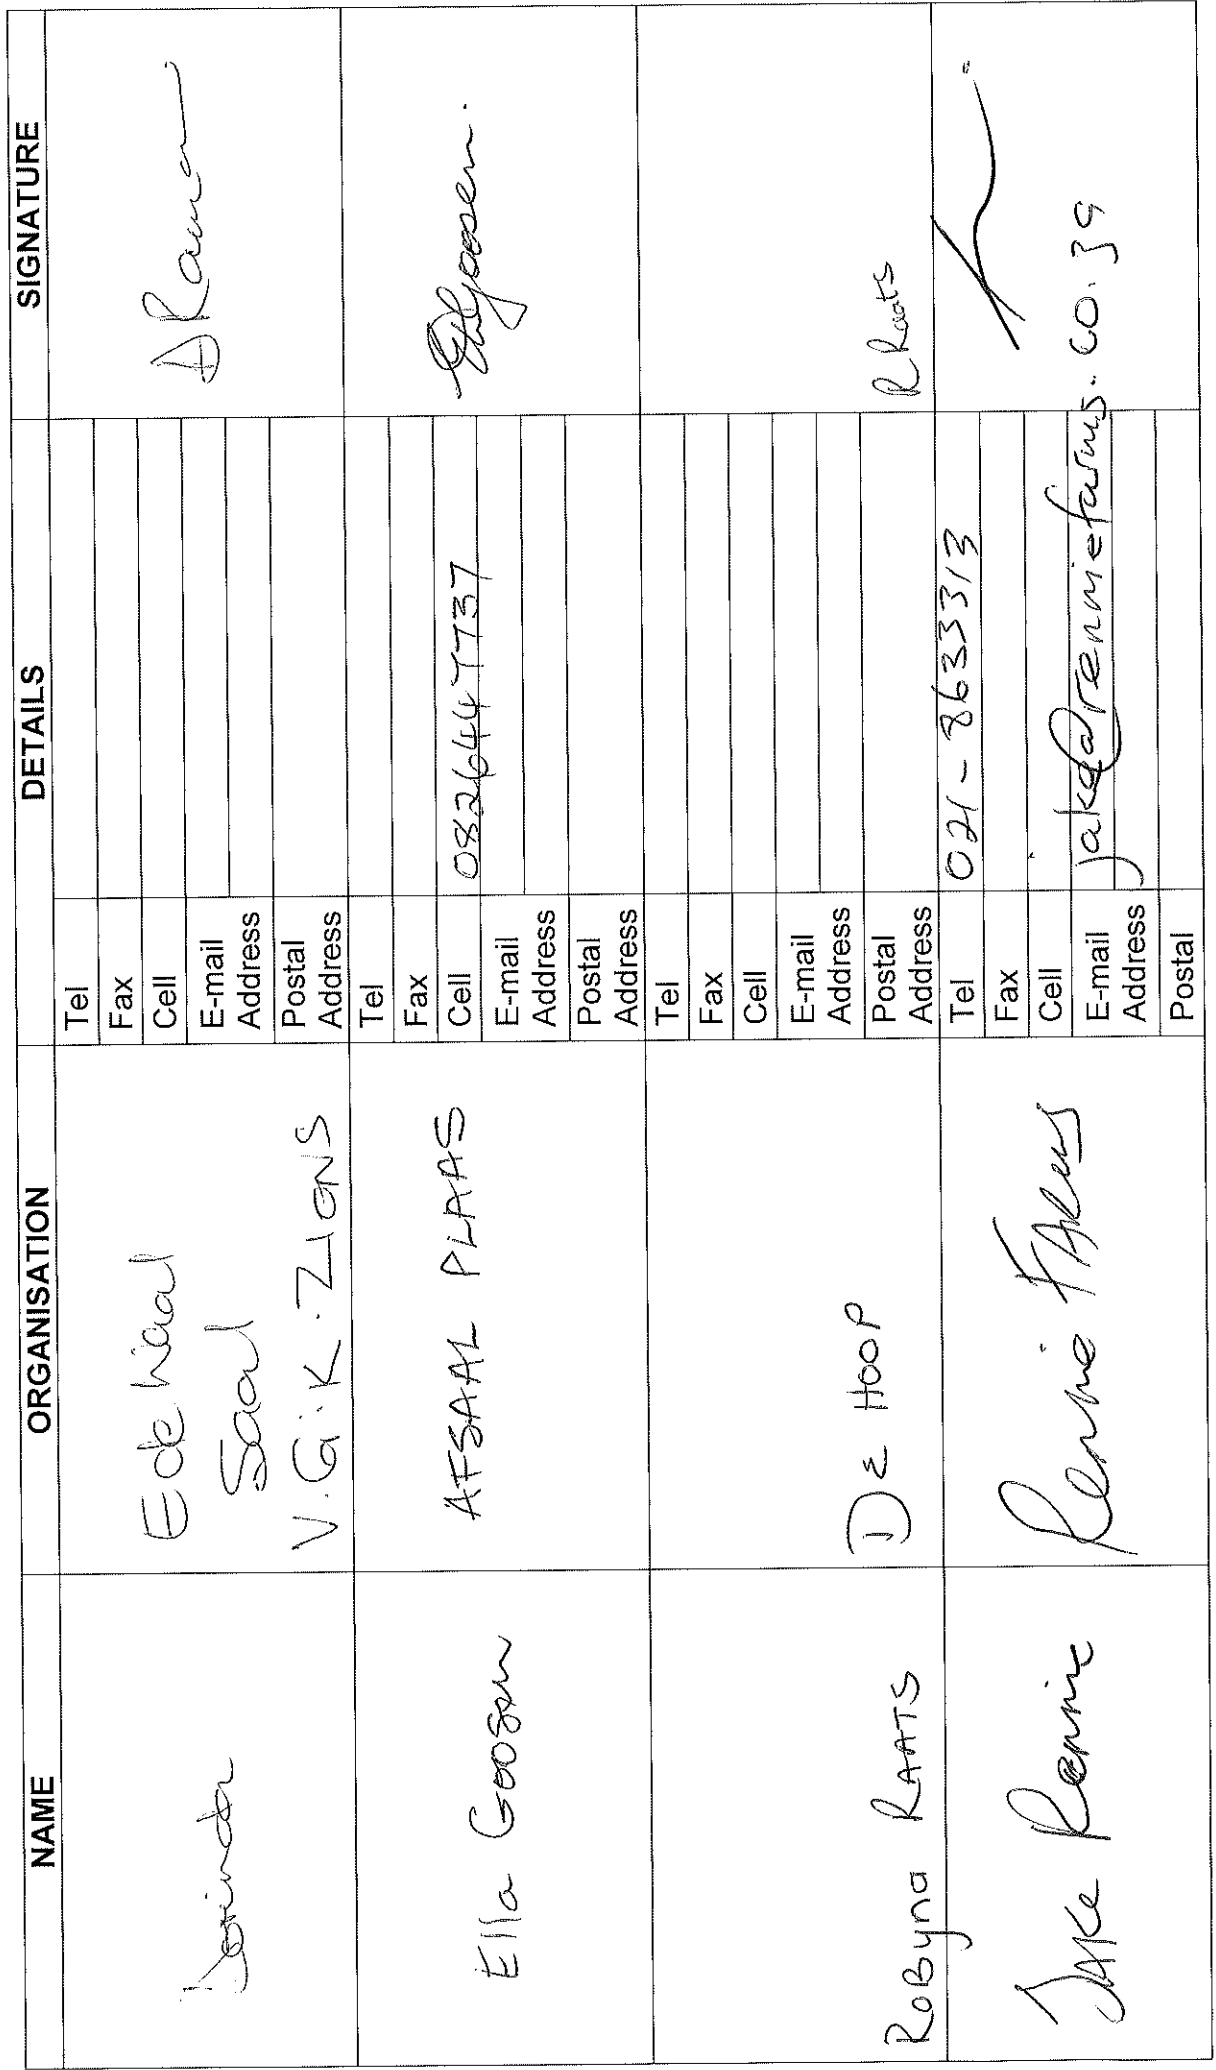 NAME ORGANISATION DETAILS SIGNATURE
Dorinda
E de Waal
Saal
V.G.K. ZIONS
Tel
Fax
Cell
E-mail
Address
Postal
Address
Ella Goosen
AFSAAL PLAAS
Tel
Fax
Cell 0826447737
E-mail
Address
Postal
Address
Robyna RAATS
DE HOOP
Tel
Fax
Cell
E-mail
Address
Postal
Address
R Raats
JAKE Rennie
Rennie FARMS
Tel 021-8633313
Fax
Cell
E-mail
Address
jake@renniefarms.co.za
Postal